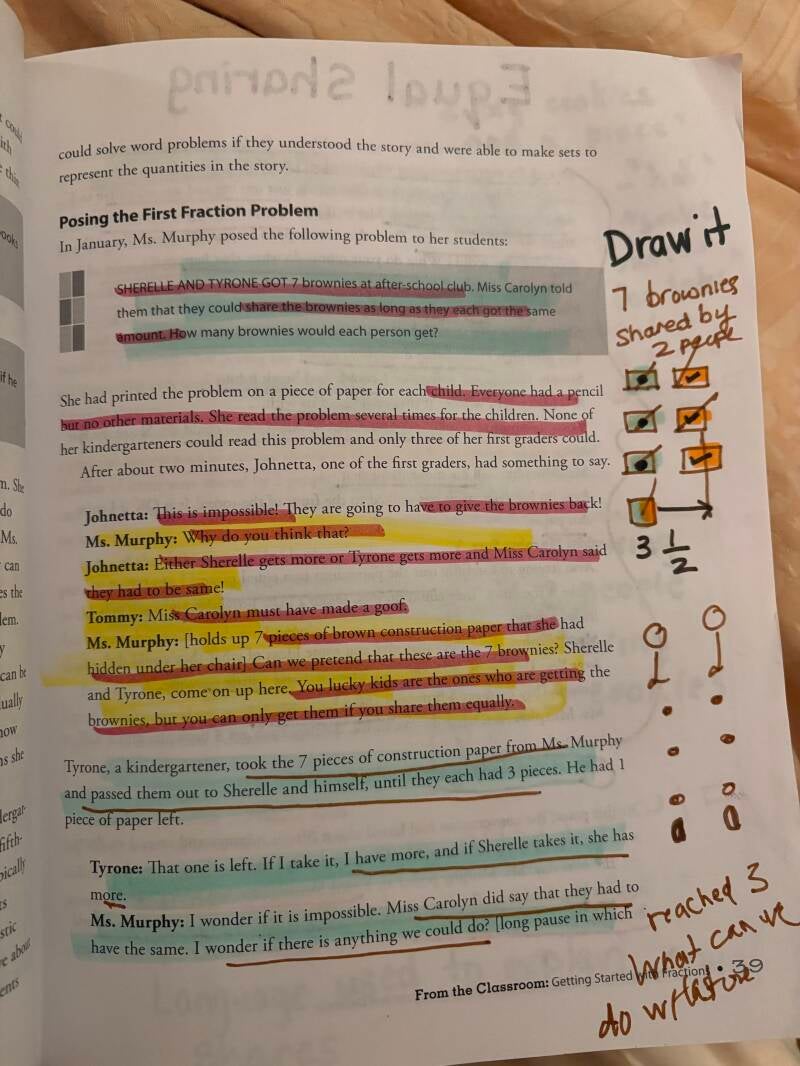 could solve word problems if they understood the story and were able to make sets to
represent the quantities in the story.
Posing the First Fraction Problem
In January, Ms. Murphy posed the following problem to her students:
SHERELLE AND TYRONE GOT 7 brownies at after-school club. Miss Carolyn told
them that they could share the brownies as long as they each got the same
amount. How many brownies would each person get?
She had printed the problem on a piece of paper for each child. Everyone had a pencil
but no other materials. She read the problem several times for the children. None of
her kindergarteners could read this problem and only three of her first graders could.
After about two minutes, Johnetta, one of the first graders, had something to say.
Johnetta: This is impossible! They are going to have to give the brownies back!
Ms. Murphy: Why do you think that?
Johnetta: Either Sherelle gets more or Tyrone gets more and Miss Carolyn said
they had to be same!
Tommy: Miss Carolyn must have made a goof.
Ms. Murphy: [holds up 7 pieces of brown construction paper that she had
hidden under her chair] Can we pretend that these are the 7 brownies? Sherelle
and Tyrone, come on up here. You lucky kids are the ones who are getting the
brownies, but you can only get them if you share them equally.
Tyrone, a kindergartener, took the 7 pieces of construction paper from Ms. Murphy
and passed them out to Sherelle and himself, until they each had 3 pieces. He had 1
piece of paper left.
Tyrone: That one is left. If I take it, I have more, and if Sherelle takes it, she has
more.
Ms. Murphy: I wonder if it is impossible. Miss Carolyn did say that they had to
have the same. I wonder if there is anything we could do? [long pause in which
From the Classroom: Getting Started with Fractions • 39
Draw it
7 brownies
shared by
2 people
3 1/2
reached 3
what can we
do w/